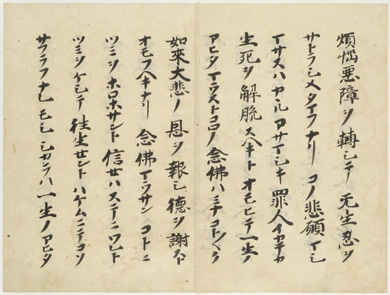 煩惱悪障ヲ轉シテ 无生忍ヲ
サトラシメタマフナリ コノ悲願マシ
マサスハ カヽル アサマシキ 罪人イカテカ
生死ヲ解脱スヘキト オモヒテ 一生ノ
アヒタ マウストコロノ 念佛ハ ミナコト〱ク
如來大悲ノ 恩ヲ報シ 德ヲ謝スト
オモフヘキナリ 念佛マウサン コトニ
ツミヲ ホロホサント 信セハ ステニ ワレト
ツミヲケシテ 往生セント ハケムニテコソ
サフラフナレ モシ シカラハ 一生ノ アヒタ